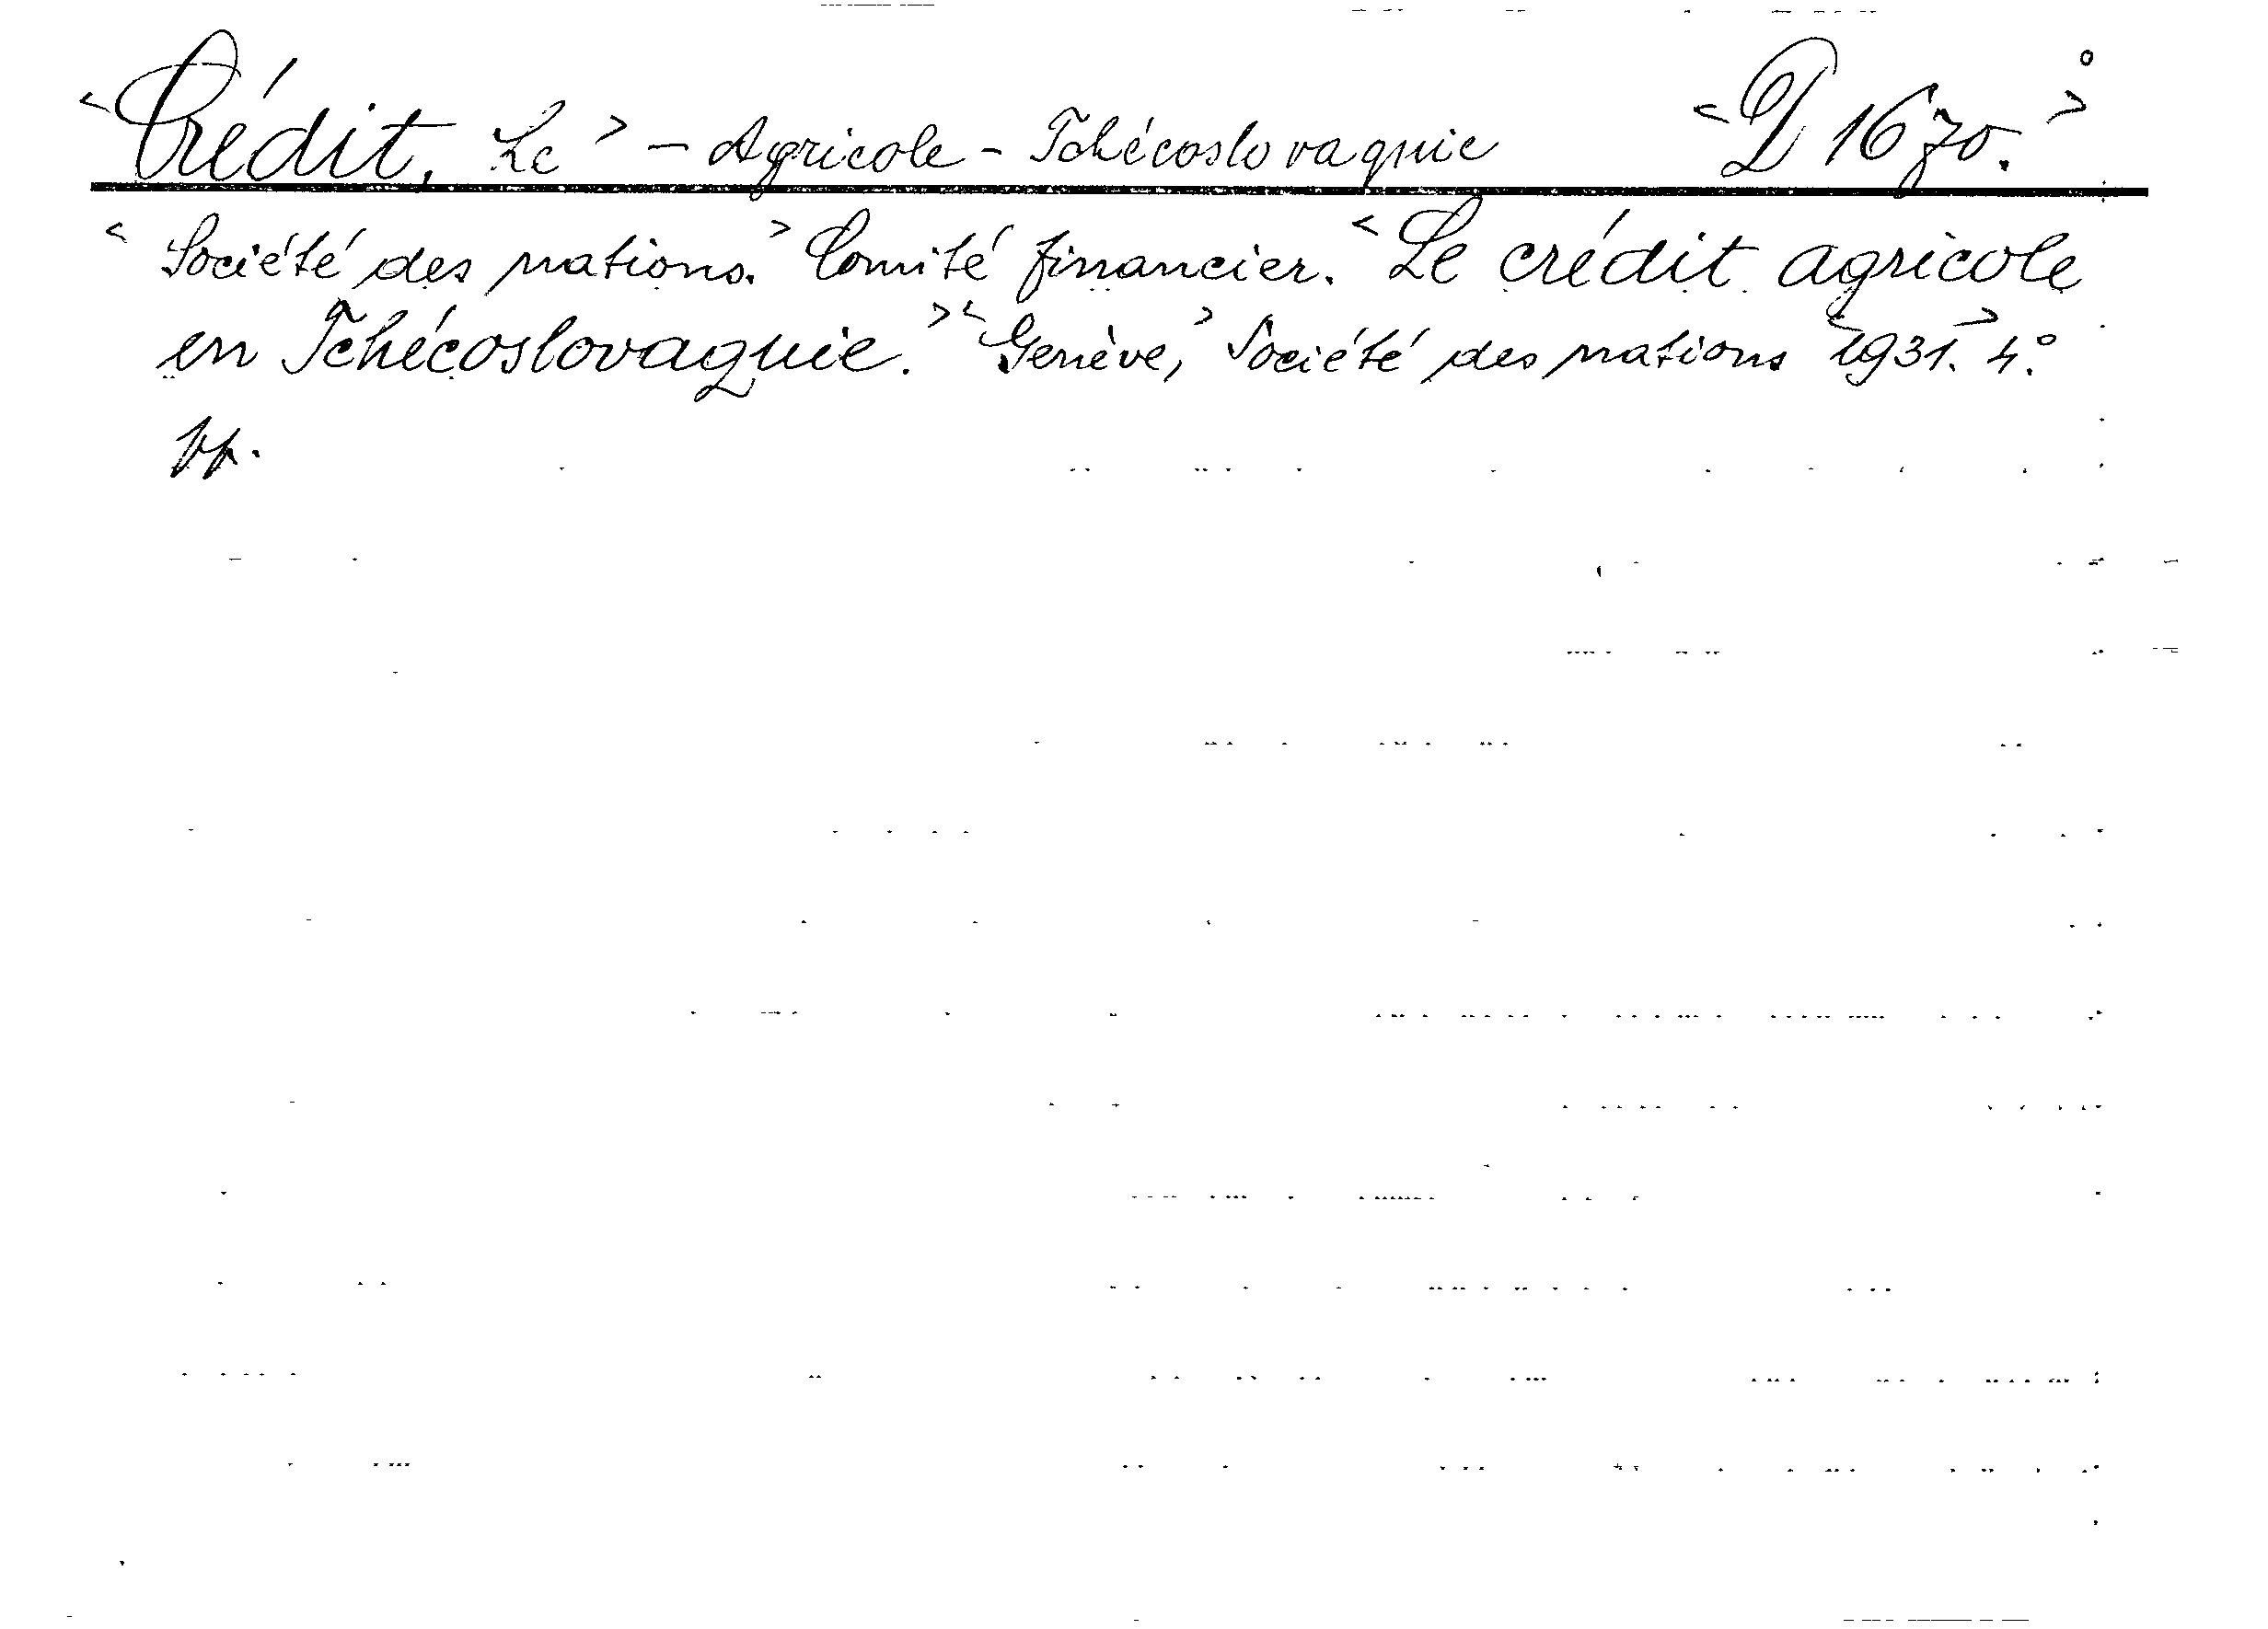 <Crédit, Le> - Agricole - Tchécoslovaquie <D 1670.>°
<Société des nations.> Comité financier. <Le crédit agricole
en Tchécoslovaquie.> <Genève,> Société des nations <1931.> 4.°
pp.